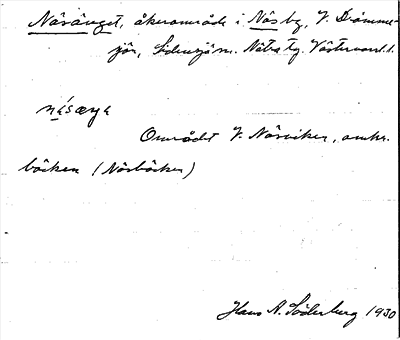 Näsänget, åkerområde i Näs by, V. Drömme-
sjön, Sidensjö sn. Nätra tg. Västernorrl. l.
näsæŋa
Området V. Näsviken, omkr.
bäcken (Näsbäcken)
Hans A. Söderberg 1930